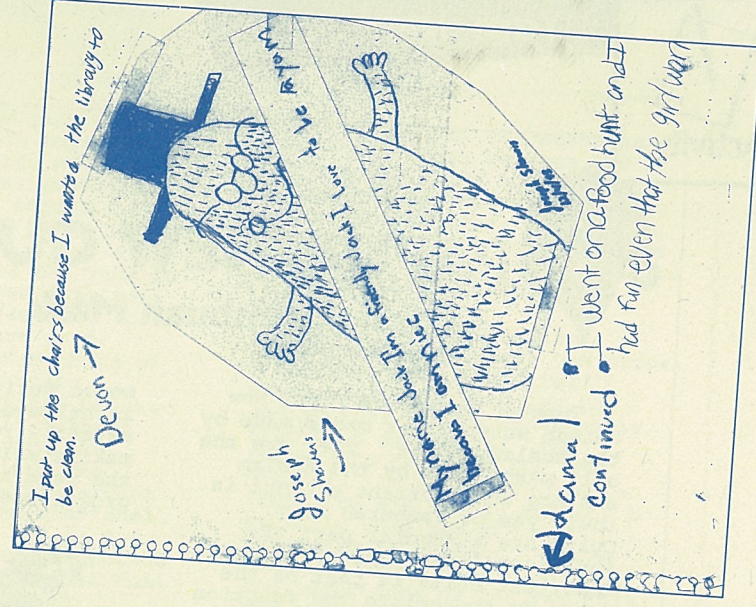 I put up the chairs because I wanted the library to
be clean.
Devon
Joseph
Shavers
My name Jack Im a friendly Jack I love to be
because I am nice
Jamal
continued
I went on a food hunt and I
had fun even that the girl won